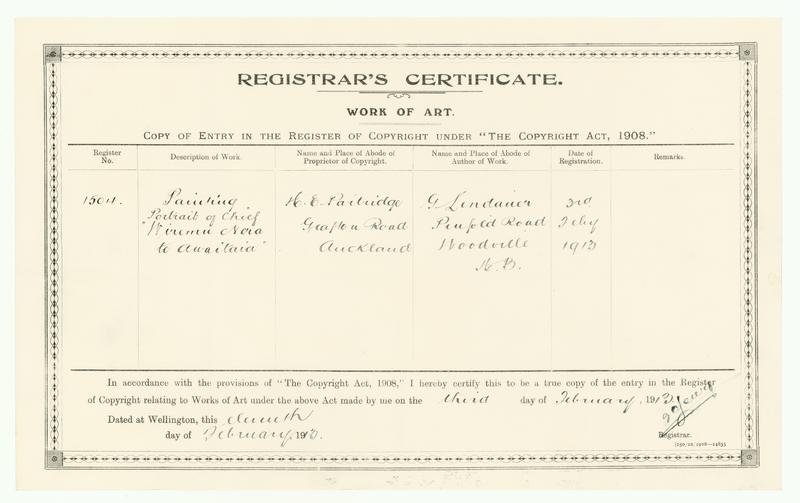 REGISTRAR'S CERTIFICATE.
WORK OF ART.
COPY OF ENTRY IN THE REGISTER OF COPYRIGHT UNDER "THE COPYRIGHT ACT, 1908."
Register No. Description of Work. Name and Place of Abode of Proprietor of Copyright. Name and Place of Abode of Author of Work. Date of Registration. Remarks.
1504. Painting H. E. Partridge G. Lindauer 3rd
Portrait of Chief Grafton Road Penfold Road Feby
"Wiremu Nera Auckland Woodville 1913
te Awaitaia" H. B.
In accordance with the provisions of "The Copyright Act, 1908," I hereby certify this to be a true copy of the entry in the Register
of Copyright relating to Works of Art under the above Act made by me on the third day of February, 1913.
Dated at Wellington, this
day of February, 1913.
Registrar.